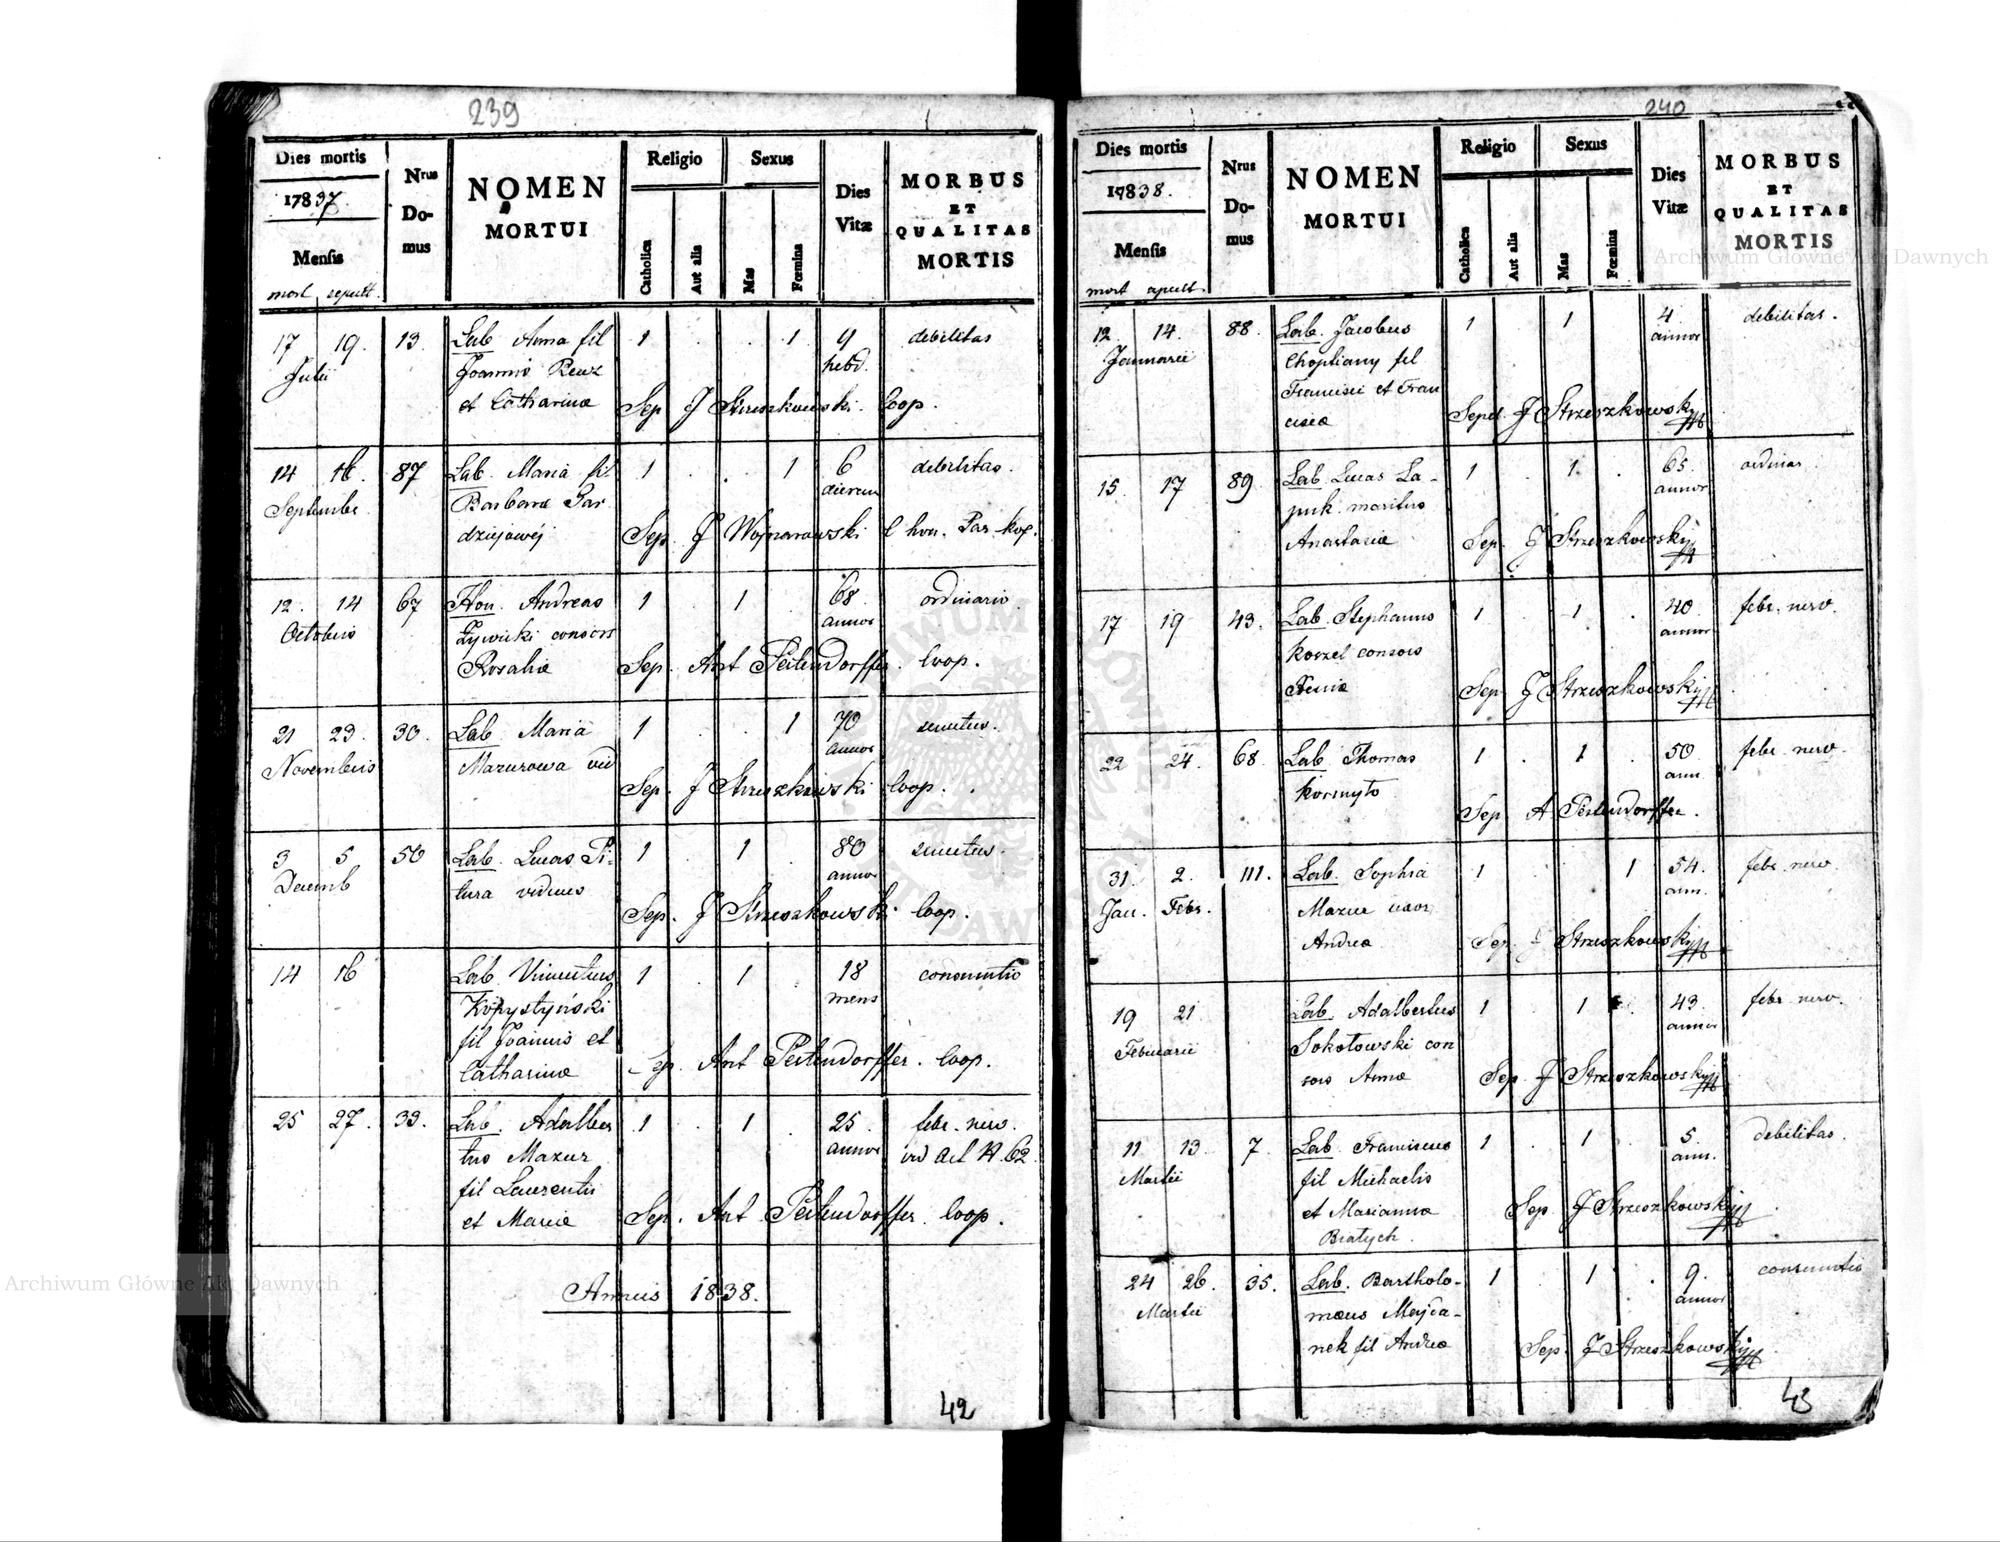 239
Dies mortis
17837.
Mensis
mort. sepult.
Nrus Domus
NOMEN
MORTUI
Religio
Catholica
Aut alia
Sexus
Mas
Fœmina
Dies Vitæ
MORBUS
ET
QUALITAS
MORTIS
17 19. 13. Lab Anna fil 1 . . 1 9 debilitas
Julii Joannis hebd.
et Catharinæ Sep J Strzeszkowski. Coop.
14 16. 87 Lab. Maria fil 1 . . 1 6 debilitas.
Septembr Barbaræ Par dierum
dziejowéj Sep. J Woynarowski
12. 14 67 Hon. Andreas 1 . 1 . 68 ordinario.
Octobris Żywicki consors annor
Rosaliæ Sep. Ant Peitendorffer. Coop.
21 23. 30. Lab. Maria 1 . . 1 70 senectus.
Novembris Mazurowa vid annor
Sep. J Strzeszkowski Coop.
3 5 50 Lab. Lucas Pi- 1 . 1 . 80 senectus.
Decemb tura viduus annor
Sep. J Strzeszkowski Coop.
14 16 Lab Vincentius 1 . 1 . 18 consumtio
Kopystyński mens
fil Joannis et
Catharinæ Sep. Ant Peitendorffer. Coop.
25 27. 33. Lab. Adalber 1 . 1 . 25 febr. nerv.
tus Mazur annor vid Act N. 62.
fil Laurentii
et Mariæ Sep. Ant Peitendorffer. Coop.
Annus 1838.
42
240
Dies mortis
17838.
Mensis
mort sepult.
Nrus Domus
NOMEN
MORTUI
Religio
Catholica
Aut alia
Sexus
Mas
Fœmina
Dies Vitæ
MORBUS
ET
QUALITAS
MORTIS
12. 14. 88. Lab. Jacobus 1 1 4. debilitas.
Januarii Choptiany fil annor
Francisci et Fran
ciscæ Sepel. J Strzeszkowski
15. 17 89 Lab. Lucas La- 1 . 1. . 65. ordinar.
puk maritus annor
Anastasiæ Sep. J Strzeszkowski
17 19 43. Lab. Stephanus 1 . 1 . 40 febr. nerv.
Koszel consors annor
Sep. J Strzeszkowski
22 24. 68. Lab Thomas 1 . 1 . 50 febr nerv.
Kormyto ann.
Sep A Peitendorffer.
31. 2. 111. Lab. Sophia 1 . . 1 54. febr. nerv.
Jan. Febr. Mazur uxor ann.
Andreæ Sep. J Strzeszkowski
19 21 Lab. Adalbertus 1 1 . 43. febr nerv.
Februarii Sokołowski con annor
sors Annæ Sep J Strzeszkowski
11 13. 7 Lab Franciscus 1 . 1 . 5. debilitas.
Martii fil Michaelis ann.
et Mariannæ Sep. J Strzeszkowski
Bratych.
24 26. 35. Lab. Bartholo- 1 . 1 . 9. consumtio
Martii mæus Majca- annor
nek fil Andreæ Sep. J Strzeszkowski
43
Archiwum Główne Akt Dawnych
Archiwum Główne Akt Dawnych